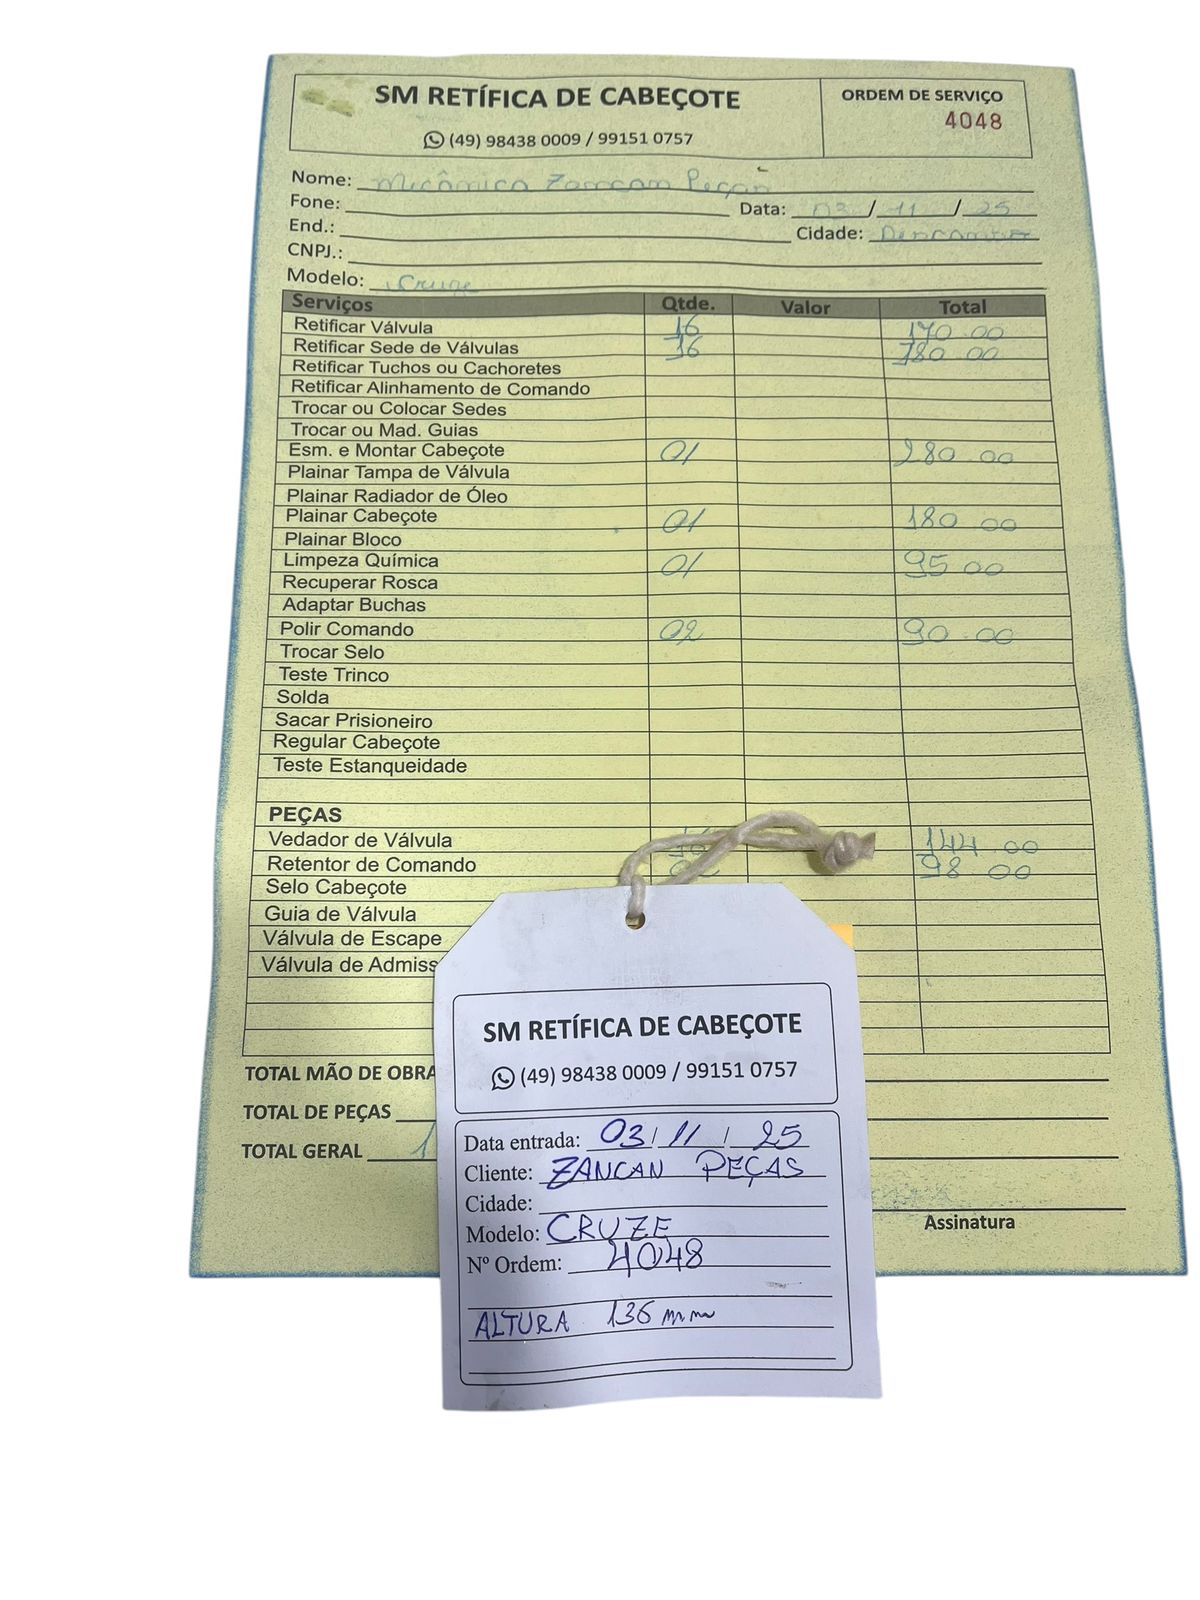 SM RETÍFICA DE CABEÇOTE
(49) 98438 0009 / 99151 0757
ORDEM DE SERVIÇO
4048
Nome: Mecânica Zancan Peças
Fone:
Data: 03 / 11 / 25
End.:
Cidade:
CNPJ.:
Modelo: Cruze
Serviços Qtde. Valor Total
Retificar Válvula 16 170.00
Retificar Sede de Válvulas 16 780.00
Retificar Tuchos ou Cachoretes
Retificar Alinhamento de Comando
Trocar ou Colocar Sedes
Trocar ou Mad. Guias
Esm. e Montar Cabeçote 01 280.00
Plainar Tampa de Válvula
Plainar Radiador de Óleo
Plainar Cabeçote 01 180 00
Plainar Bloco
Limpeza Química 01 95 00
Recuperar Rosca
Adaptar Buchas
Polir Comando 02 90.00
Trocar Selo
Teste Trinco
Solda
Sacar Prisioneiro
Regular Cabeçote
Teste Estanqueidade
PEÇAS
Vedador de Válvula 16 144.00
Retentor de Comando 02 98 00
Selo Cabeçote
Guia de Válvula
Válvula de Escape
Válvula de Admiss
TOTAL MÃO DE OBRA
TOTAL DE PEÇAS
TOTAL GERAL 1
Assinatura
SM RETÍFICA DE CABEÇOTE
(49) 98438 0009 / 99151 0757
Data entrada: 03 / 11 / 25
Cliente: ZANCAN PEÇAS
Cidade:
Modelo: CRUZE
Nº Ordem: 4048
ALTURA 136 mm